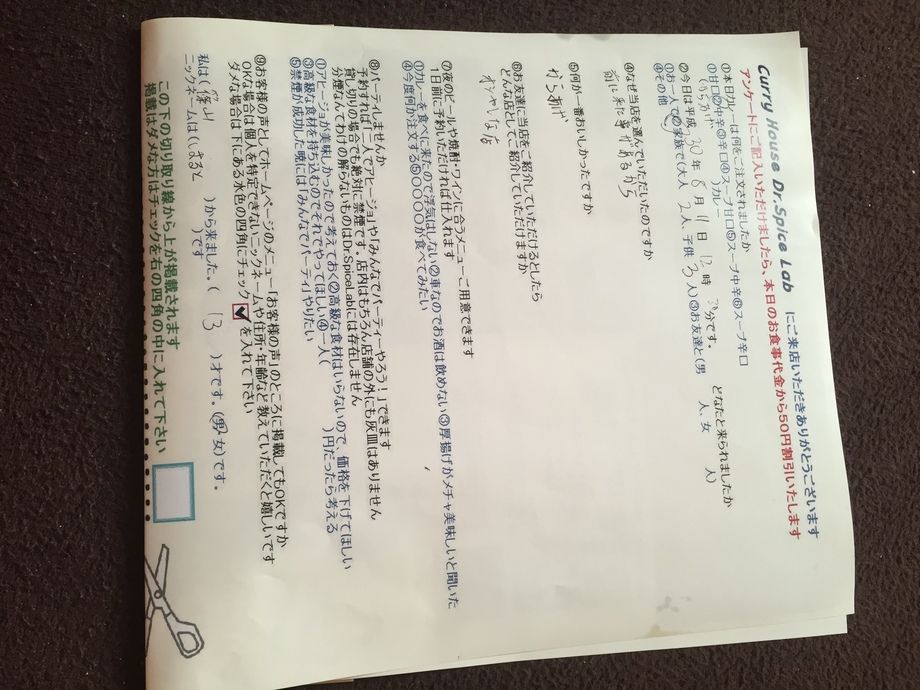 Curry House Dr.Spice Lab にご来店いただきありがとうございます
アンケートにご記入いただけましたら、本日のお食事代金から50円割引いたします
①本日カレーは何をご注文されましたか
①甘口②中辛③辛口④スープ甘口⑤スープ中辛⑥スープ辛口
からあげ カレー
②今日は平成30年8月11日12時 分です。 どなたと来られましたか
①お一人で②ご家族で(大人 2人、子供 3人)③お友達と(男 人、女 人)
④その他
④なぜ当店を選んでいただいたのですか
前に来た事があるから
⑤何が一番おいしかったですか
からあげ
⑥お友達に当店をご紹介していただけるとしたら
どんな店としてご紹介していただけますか
オシャレな店
⑦夜のビールや焼酎・ワインに合うメニューご用意できます
1日前に予約いただければ仕入れます
①カレーを食べに来たので浮気はしない②車なのでお酒は飲めない③厚揚げがメチャ美味しいと聞いた
④今度何か注文する⑤〇〇〇〇が食べてみたい
⑧パーティしませんか
予約すれば「二人でアヒージョ」や「みんなでパーティーやろう!」できます
貸し切りの場合でも絶対に禁煙です。店内はもちろん店舗の外にも灰皿はありません
分煙なんてわけの解らないものはDr.SpiceLabには存在しません
①アヒージョが美味しかったので考えておく②高級な食材はいらないので、価格を下げてほしい
③高級な食材を持ち込むのでそれでやってほしい④一人( )円だったら考える
⑤禁煙が成功した暁には「みんなでパーティ」やりたい
⑨お客様の声としてホームページのメニュー「お客様の声」のところに掲載してもOKですか
OKな場合は個人を特定できないニックネームや住所・年齢など教えていただくと嬉しいです
ダメな場合は下にある水色の四角にチェック✔を入れて下さい
私は( )から来ました。( 13 )才です。(男・女)です。
ニックネームは( )です
この下の切り取り線から上が掲載されます
掲載はダメな方はチェックを右の四角の中に入れて下さい